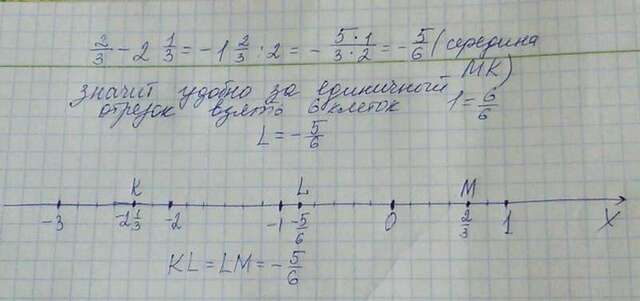 2/3 - 2 1/3 = -1 2/3 : 2 = - 5·1/3·2 = - 5/6 (середина МК)
значит удобно за единичный
отрезок взять 6 клеток 1 = 6/6
L = - 5/6
K L M
-3 -2 1/3 -2 -1 -5/6 0 2/3 1 X
KL = LM = - 5/6